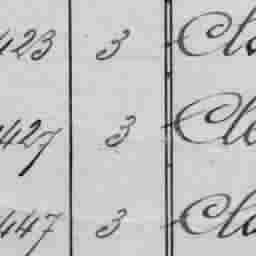 423 3 Cla
427 3 Cle
447 3 Cla